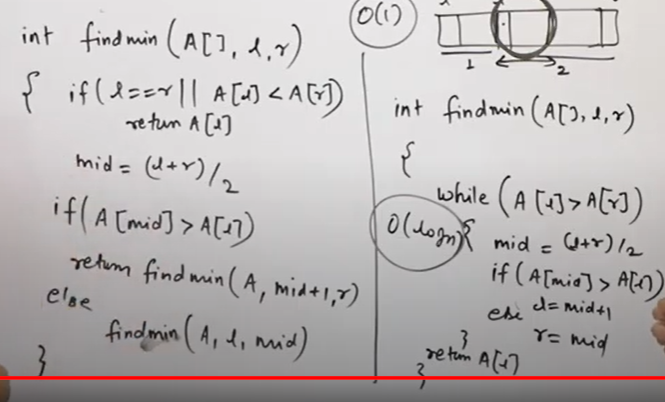 int findmin (A[], l, r)
{ if (l==r || A[l] < A[r])
retun A[l]
mid = (l+r)/2
if (A[mid] > A[l])
return findmin (A, mid+1, r)
else
findmin (A, l, mid)
}
O(1)
1 2
int findmin (A[], l, r)
{
while (A[l] > A[r])
O(logn) { mid = (l+r)/2
if (A[mid] > A[l])
l = mid+1
else
r = mid
}
retun A[l]
}